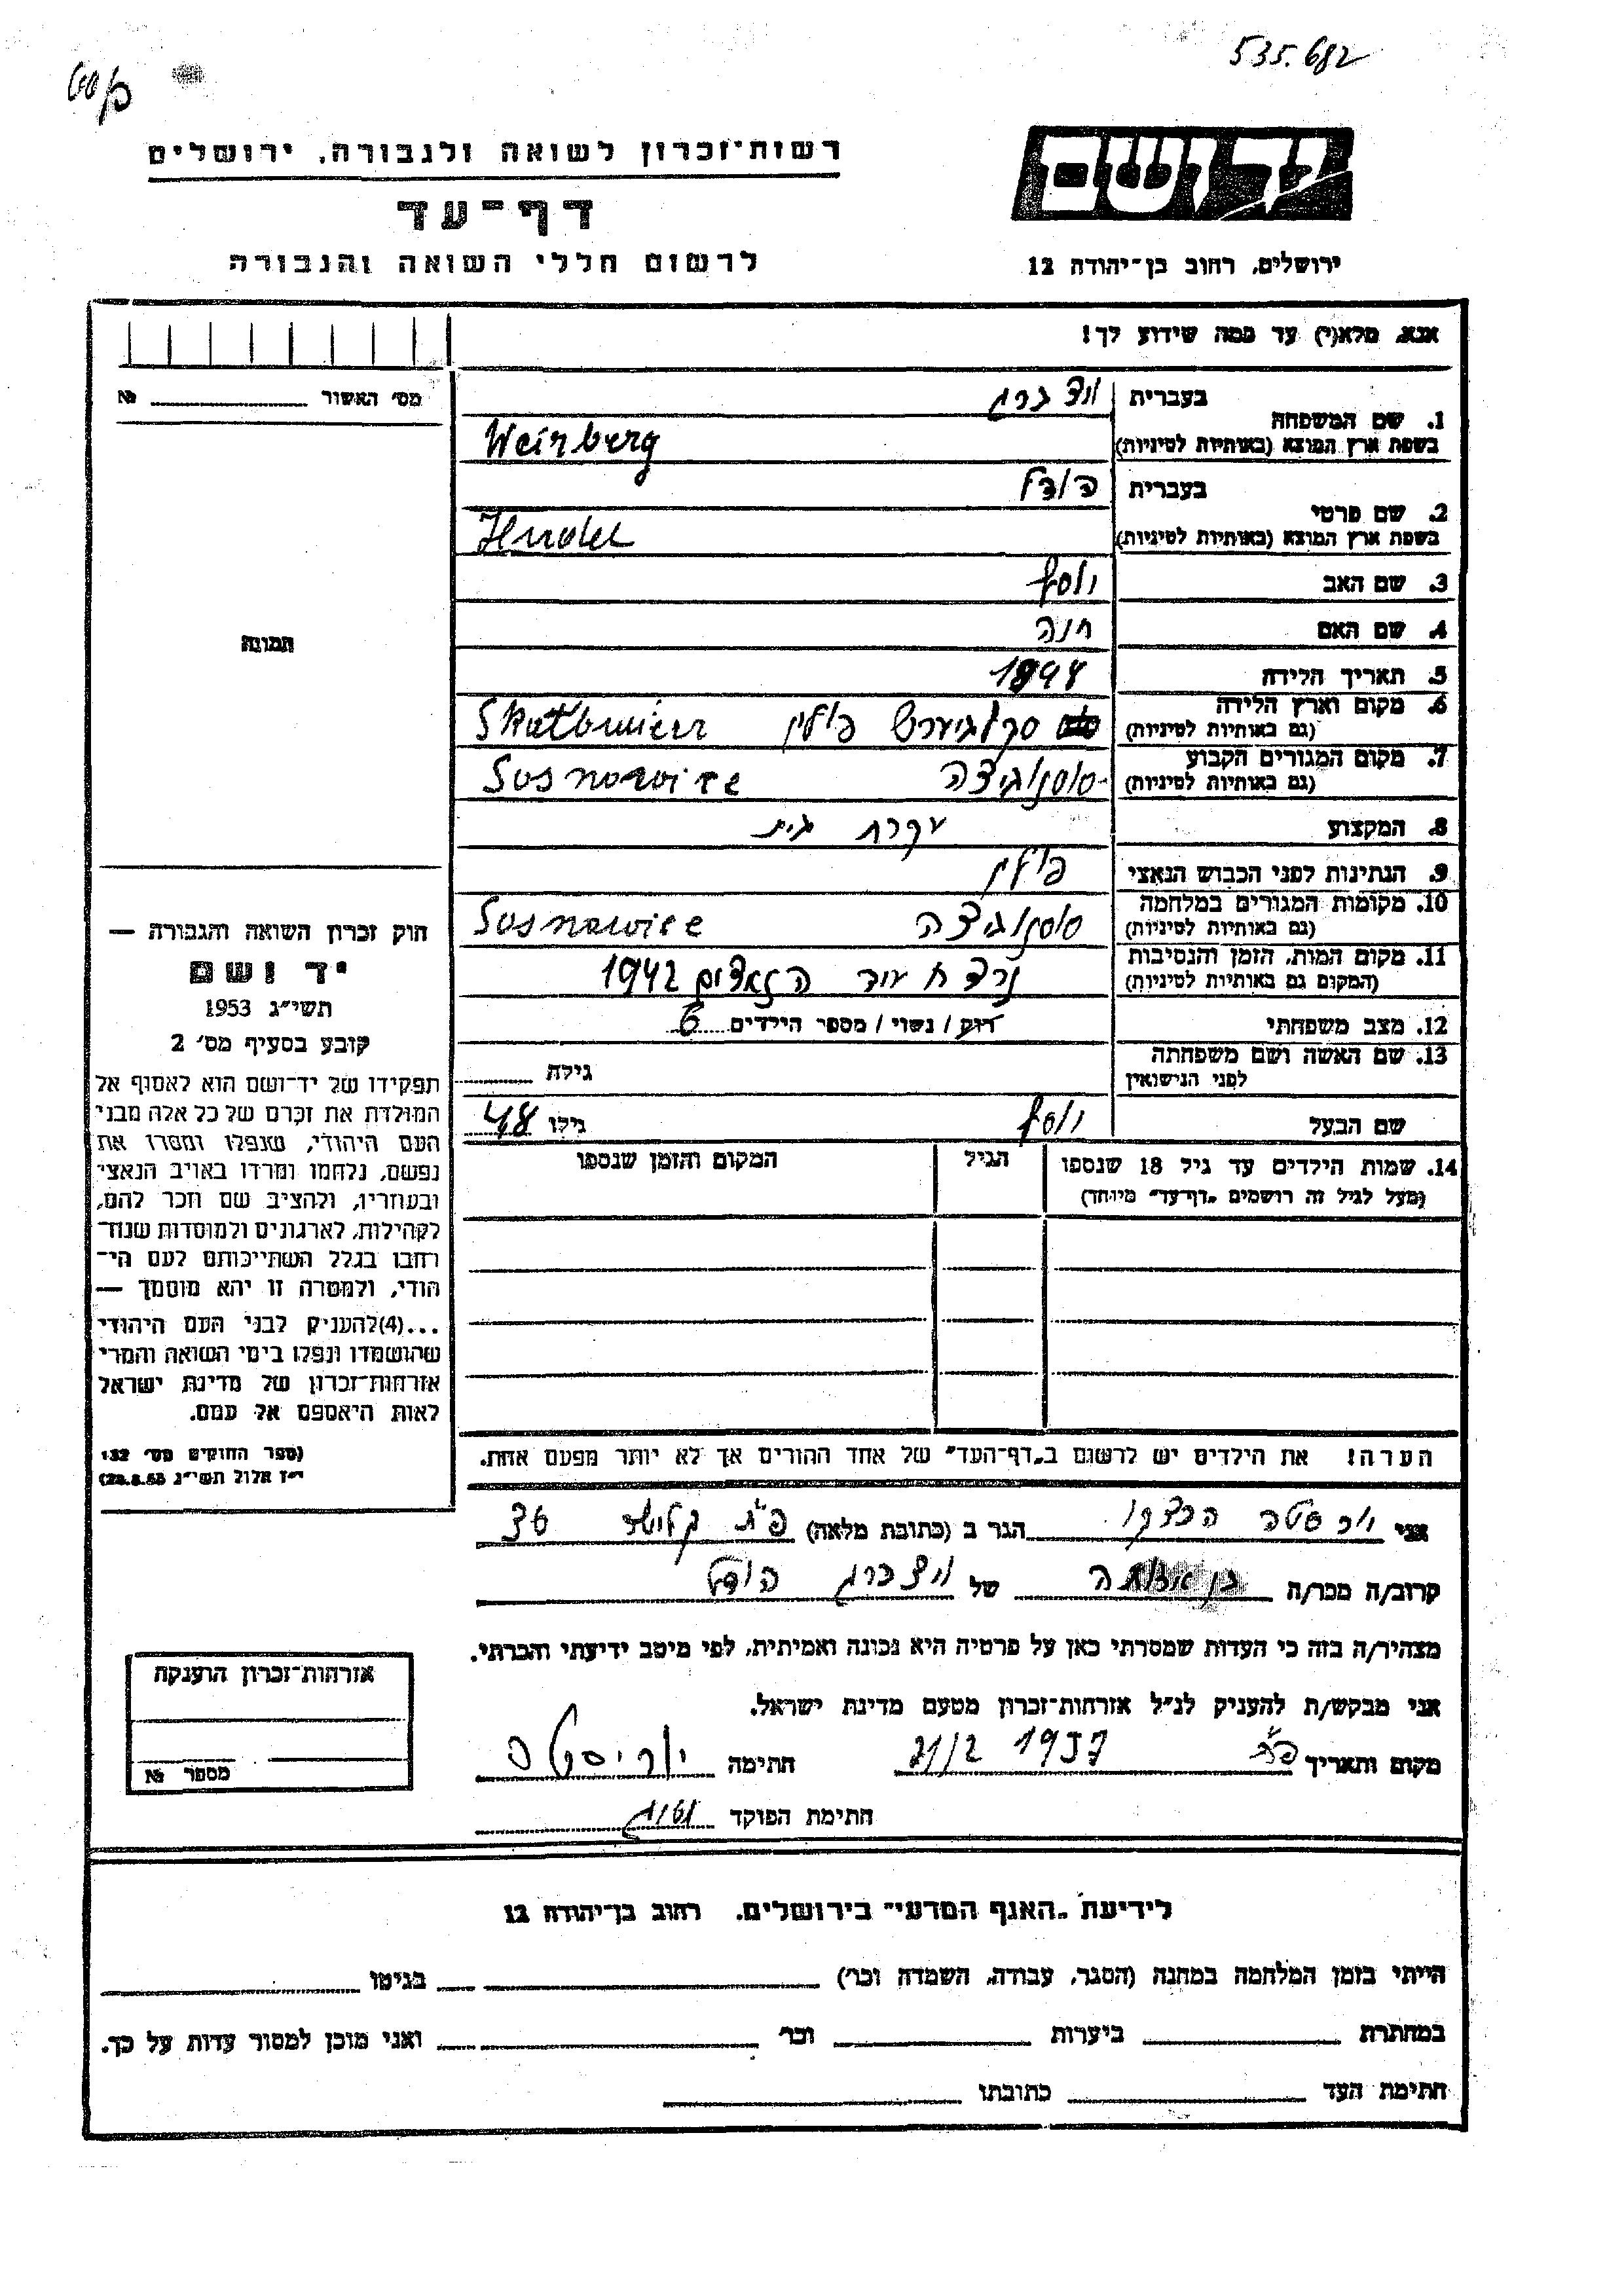 535.682
רשות־זכרון לשואה ולגבורה, ירושלים
יד ושם
דף־עד
לרשום חללי השואה והגבורה
ירושלים, רחוב בן־יהודה 12
אנא, מלא(י) עד כמה שידוע לך!
מס׳ האשור №
1. שם המשפחה בעברית
בשפת ארץ המוצא (באותיות לטיניות) Weinberg
2. שם פרטי בעברית הודל
בשפת ארץ המוצא (באותיות לטיניות) Hudel
3. שם האב יוסף
4. שם האם חנה
5. תאריך הלידה 1894
6. מקום וארץ הלידה (גם באותיות לטיניות) פולין
7. מקום המגורים הקבוע (גם באותיות לטיניות) סוסנוביצה Sosnowice
8. המקצוע עקרת בית
9. הנתינות לפני הכבוש הנאצי פולין
10. מקומות המגורים במלחמה (גם באותיות לטיניות) סוסנוביצה Sosnowice
11. מקום המות, הזמן והנסיבות (המקום גם באותיות לטיניות) 1942
12. מצב משפחתי רווק / נשוי / מספר הילדים 6
13. שם האשה ושם משפחתה לפני הנישואין גילה
שם הבעל יוסף גילו 48
14. שמות הילדים עד גיל 18 שנספו הגיל המקום והזמן שנספו
(מעל לגיל זה רושמים „דף־עד״ מיוחד)
הערה! את הילדים יש לרשום ב„דף־העד״ של אחד ההורים אך לא יותר מפעם אחת.
תמונה
חוק זכרון השואה והגבורה —
יד ושם
תשי״ג 1953
קובע בסעיף מס׳ 2
תפקידו של יד־ושם הוא לאסוף אל
המולדת את זכרם של כל אלה מבני
העם היהודי, שנפלו ומסרו את
נפשם, נלחמו ומרדו באויב הנאצי
ובעוזריו, ולהציב שם וזכר להם,
לקהילות, לארגונים ולמוסדות שנח־
רבו בגלל השתייכותם לעם הי־
הודי, ולמטרה זו יהא מוסמך —
...(4)להעניק לבני העם היהודי
שהושמדו ונפלו בימי השואה והמרי
אזרחות־זכרון של מדינת ישראל
לאות היאספם אל עמם.
(ספר החוקים מס׳ 132
י״ז אלול תשי״ג 28.8.53)
אני הגר ב (כתובת מלאה) פ״ת
קרוב/ה מכר/ה של הודל
מצהיר/ה בזה כי העדות שמסרתי כאן על פרטיה היא נכונה ואמיתית, לפי מיטב ידיעתי והכרתי.
אני מבקש/ת להעניק לנ״ל אזרחות־זכרון מטעם מדינת ישראל.
מקום ותאריך פ״ת 21/2 1957 חתימה
חתימת הפוקד
אזרחות־זכרון הוענקה
מספר №
לידיעת „האגף המדעי״ בירושלים, רחוב בן־יהודה 12
הייתי בזמן המלחמה במחנה (הסגר, עבודה, השמדה וכו׳) בגיטו
במחתרת ביערות וכו׳ ואני מוכן למסור עדות על כך.
חתימת העד כתובתו